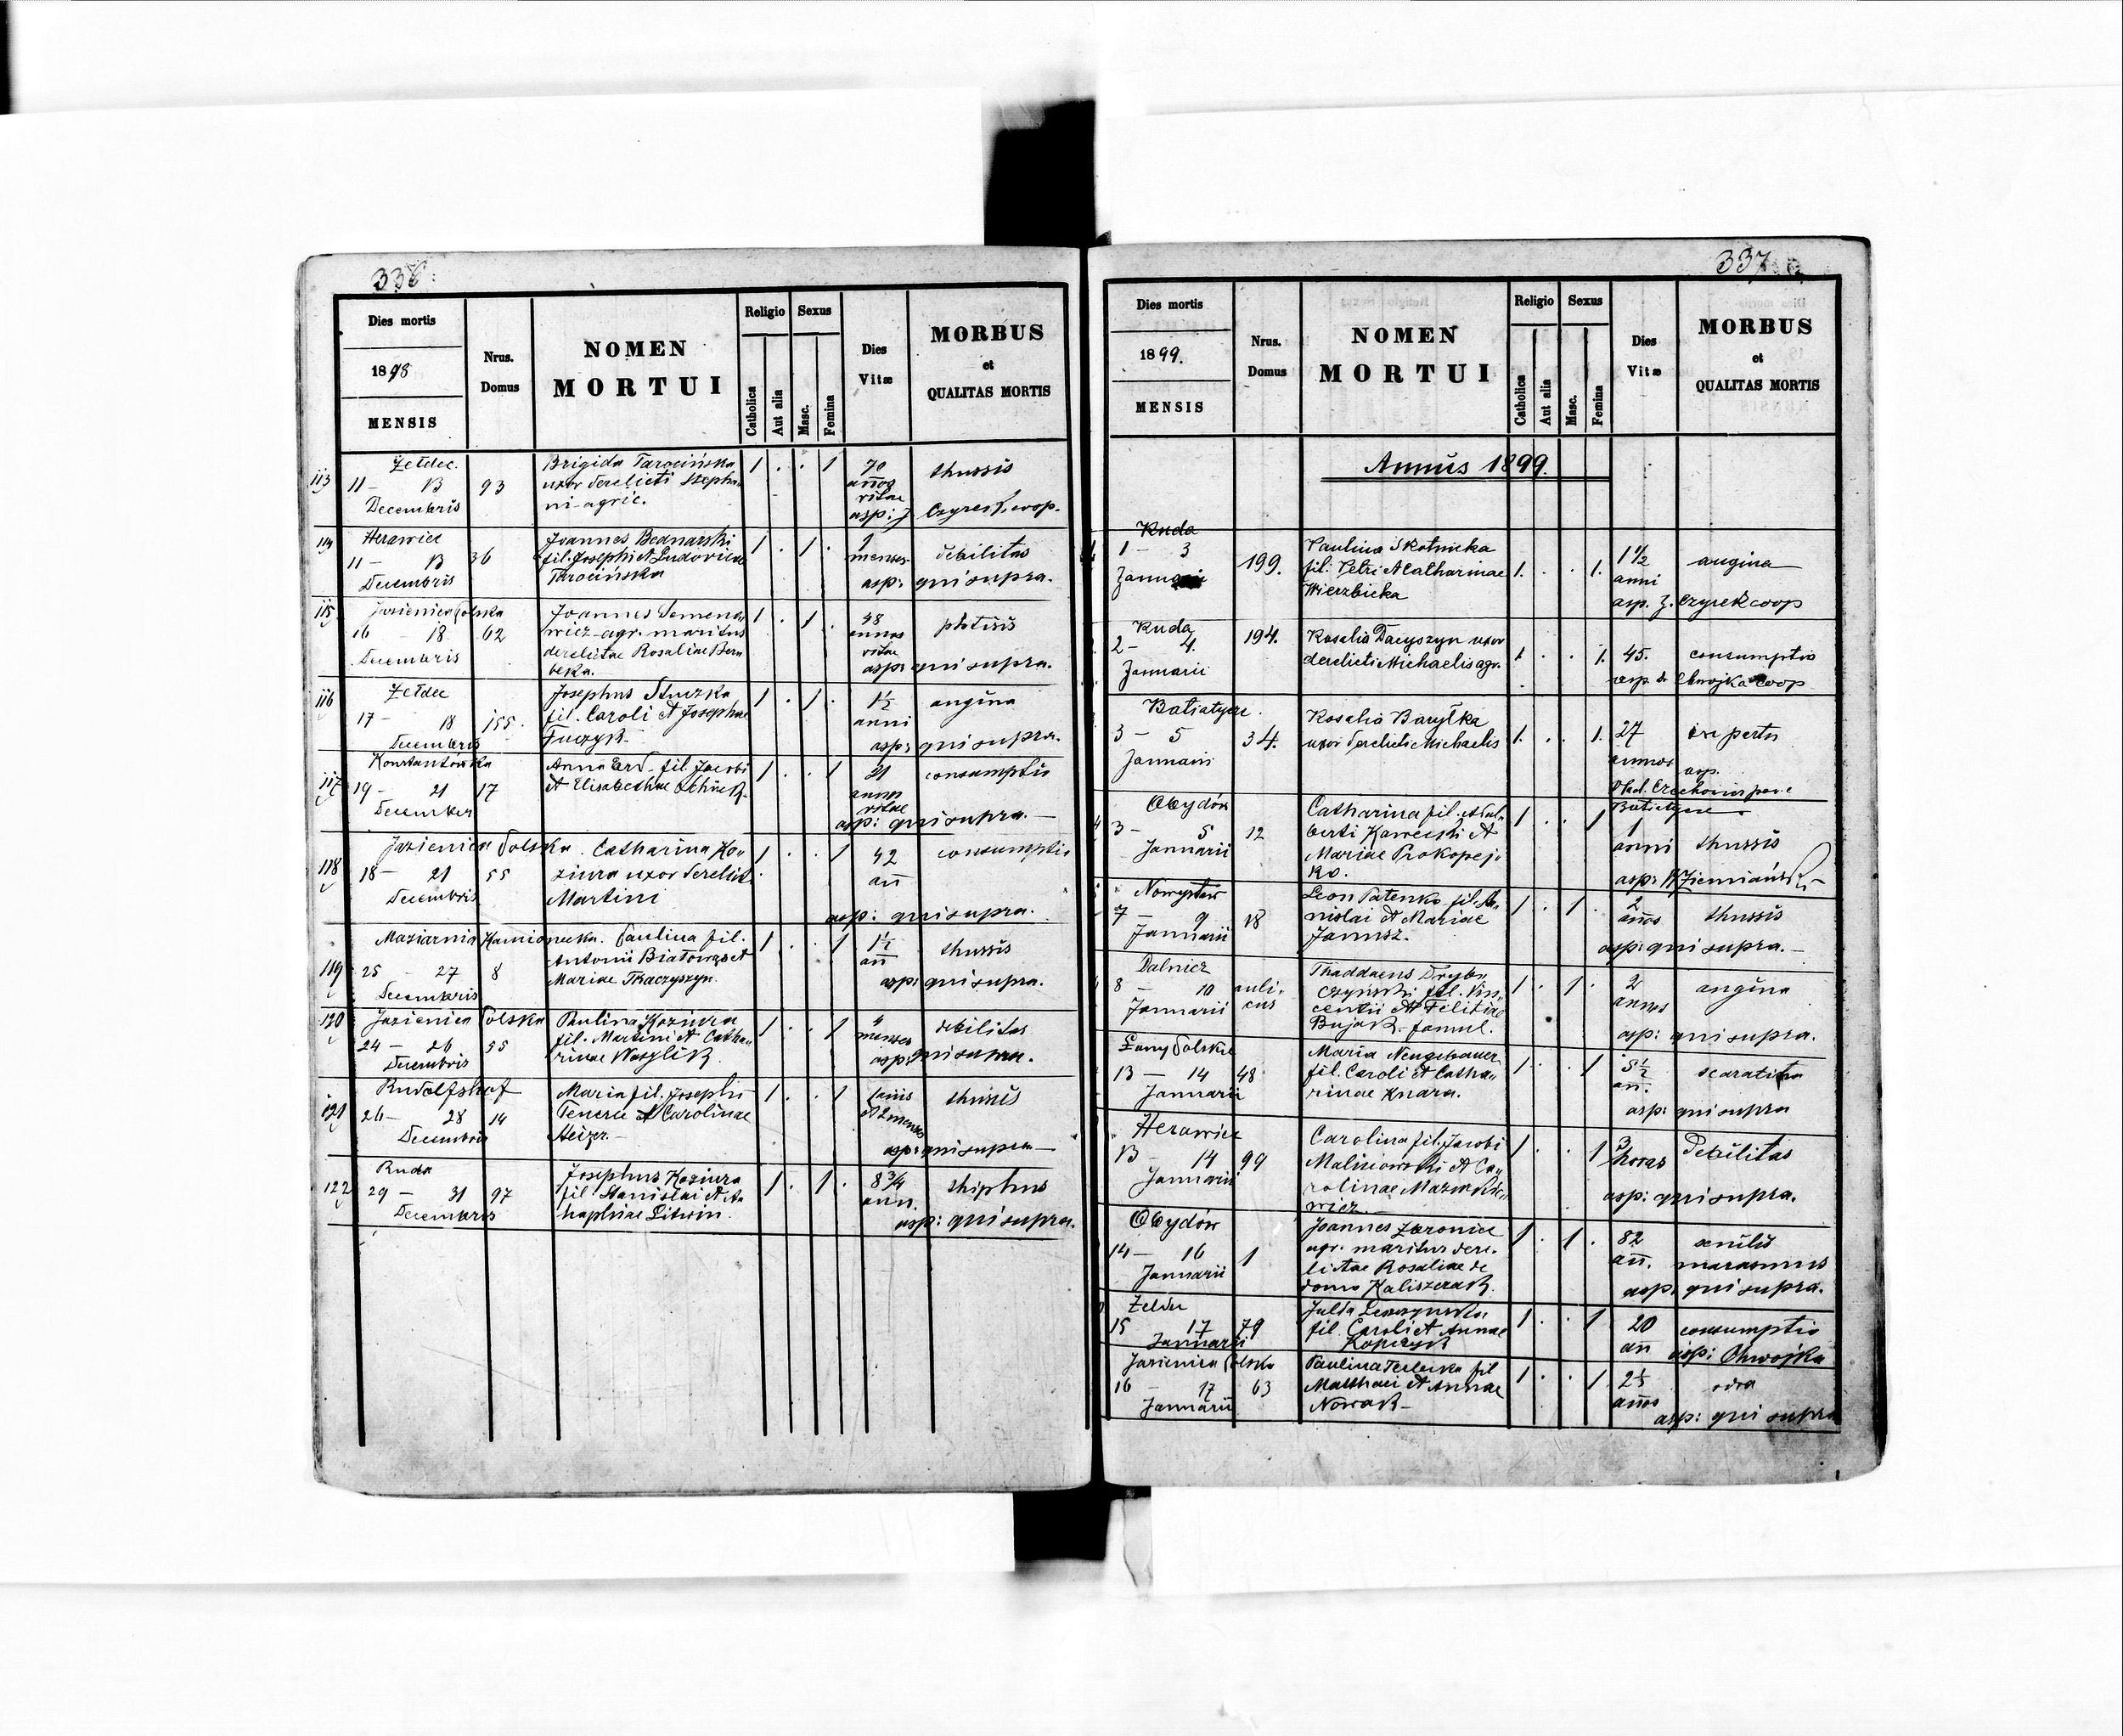 336
Dies mortis
1898
MENSIS
Nrus.
Domus
NOMEN
MORTUI
Religio
Catholica
Aut alia
Sexus
Masc.
Femina
Dies
Vitæ
MORBUS
et
QUALITAS MORTIS
113
Żełdec.
11 - 13
Decembris
93
Brigida Tarocińska
uxor derelicti Stepha-
ni agric.
1 . . 1
70
annor
vitae
thussis
asp: J. Czyrek coop.
114
Herawiec
11 - 13
Decembris
36
Joannes Bednarski
fil. Josephi et Ludovicae
Tarocińska
1 . 1 .
debilitas
asp: qui supra.
115
Jazienica Polska
16 - 18
Decembris
62
Joannes Semeno-
wicz agr. maritus
derelictae Rosaliae Bem
beka.
1 . 1 .
48
annos
vitae
phtisis
asp: qui supra.
116
Żełdec
17 - 18
Decembris
155.
Josephus
fil. Caroli et Josephae
Tuczyk
1 . 1 .
1½
anni
angina
asp: qui supra.
117
Konstantówka
19 - 21
December
17
Anna Erd. fil. Jacobi
et Elisabethae
1 . . 1
21
annos
vitae
consumptio
asp: qui supra.
118
Jazienica Polska.
18 - 21
Decembris
55
Catharina Ko-
ziura uxor derelict.
Martini
1 . . 1
42
an̄
consumptio
asp: qui supra.
119
Maziarnia Kamionecka.
25 - 27
Decembris
8
Paulina fil.
Antonii Białowąs et
Mariae Tkaczyszyn.
1 . . 1
1½
an̄
thussis
asp: qui supra.
120
Jazienica Polska
24 - 26
Decembris
55
Paulina Koziura
fil. Martini et Catha-
rinae Wasylik
1 . . 1
4
menses
debilitas
asp: qui supra.
121
Rudolfshof
26 - 28
Decembris
14
Maria fil. Josephi
et Carolinae
Heizer.
1 . . 1
et 2 menses
thussis
asp: qui supra
122
Ruda
29 - 31
Decembris
97
Josephus Koziura
fil. Stanislai et A-
haphiae Litwin.
1 . 1 .
8 ¾
ann.
thiphus
asp: qui supra.
337
Dies mortis
1899.
MENSIS
Nrus.
Domus
NOMEN
MORTUI
Religio
Catholica
Aut alia
Sexus
Masc.
Femina
Dies
Vitæ
MORBUS
et
QUALITAS MORTIS
Annus 1899.
Ruda
1 - 3
Januarii
199.
Paulina Skotnicka
fil. Petri et Catharinae
Wierzbicka
1. . . 1.
1 ½
anni
angina
asp. J. Czyrek coop
Ruda
2 - 4.
Januarii
194.
Rosalia Daczyszyn uxor
derelicti Michaelis agr.
1 . . 1.
45.
consumptio
asp. Chwojka coop
Batiatycze.
3 - 5
Januarii
34.
Rosalia Baryłka
uxor derelicti Michaelis
1. . . 1.
27
annos
ex partu
asp.
Batiatycze.
4
Obydów
3 - 5
Januarii
12
Catharina fil. Adal-
berti Kawecki et
Mariae Prokopej-
ko.
1 . . 1
1
anni
thussis
asp: W. Ziemiański
5
Nowystaw
7 - 9
Januarii
18
Leon Patenko fil. Sta-
nislai et Mariae
Janusz.
1 . 1 .
2
an̄os
thussis
asp: qui supra.
Dalnicz
8 - 10
Januarii
auli-
cus
Thaddaeus Tryb-
czyński fil. Vin-
centii et Felitiae
Bujak famul.
1 . 1 .
2
annos
angina
asp: qui supra.
Łany Polskie
13 - 14
Januarii
48
Maria Neugebauer
fil. Caroli et Catha-
rinae Knara.
1 . . 1
5½
an̄.
scarlatina
asp: qui supra
Herawiec
13 - 14
Januarii
99
Carolina fil. Jacobi
Malinowski et Ca-
rolinae Mazurkie-
wicz
1 . . 1
3
horas
debilitas
asp: qui supra.
Obydów
14 - 16
Januarii
1
Joannes
agr. maritus dere-
lictae Rosaliae de
domo Kaliszczak.
1 . 1 .
82
an̄.
senilis
marasmus
asp. qui supra.
Żeldec
15 17
Januarii
79
Julia
fil. Caroli et Annae
Kopczyk
1 . . 1
20
an̄
consumptio
asp: Chwojka
Jazienica Polska
16 - 17
Januarii
63
Paulina Terlecka fil
Matthaei et Annae
Nowak
1 . . 1
an̄os
odra
asp: qui supra